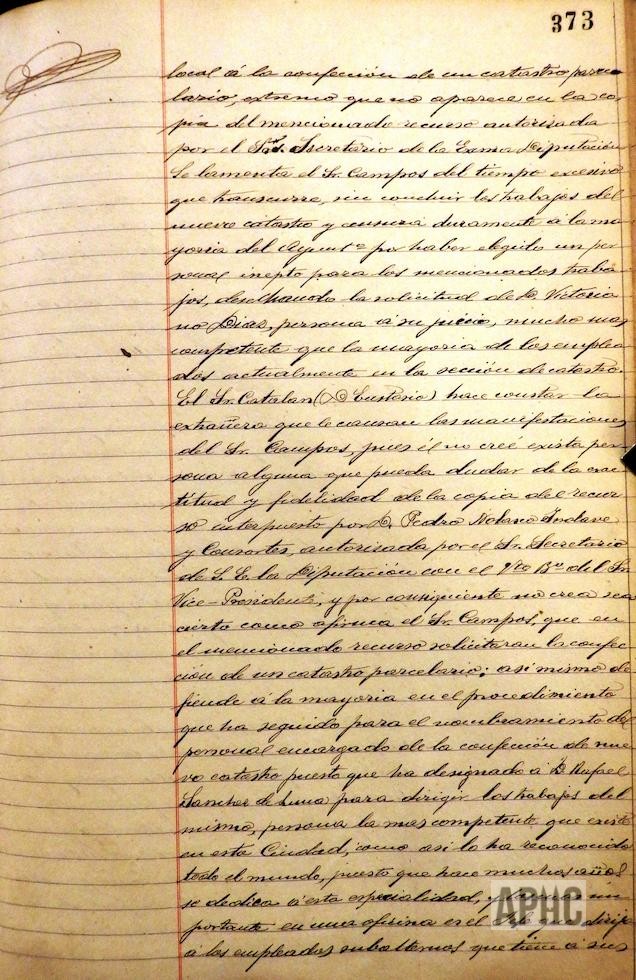 373
local á la confección de un catastro parce-
lario, extremo que no aparece en la co-
pia del mencionado recurso autorizada
por el Sr. Secretario de la Exma Diputación
Se lamenta el Sr. Campos del tiempo excesivo
que transcurre, sin concluir los trabajos del
nuevo catastro y censura duramente á la ma-
yoria del Ayuntº por haber elegido un per-
sonal inepto para los mencionados traba-
jos, desechando la solicitud de D. Victoria-
no Diaz, persona á su juicio, mucho mas
competente que la mayoria de los emplea-
dos actualmente en la sección de catastro.
El Sr. Catalan (D Eustasio) hace constar la
extrañeza que le causan las manifestaciones
del Sr. Campos, pues él no creé exista per-
sona alguna que pueda dudar de la exac-
titud y fidelidad de la copia del recur-
so interpuesto por D. Pedro Nolasco
y Consortes, autorizada por el Sr. Secretario
de S. E. la Diputación con el Vto Bº del Sr.
Vice-Presidente, y por consiguiente no crea sea
cierto como afirma el Sr. Campos, que en
el mencionado recurso solicitaran la confec-
ción de un catastro parcelario; asi mismo de-
fiende á la mayoria en el procedimiento
que ha seguido para el nombramiento del
personal encargado de la confección de nue-
vo catastro puesto que ha designado á D. Rafael
Sanchez de Luna para dirigir los trabajos del
mismo, persona la mas competente que existe
en esta Ciudad, como asi lo ha reconocido
todo el mundo, puesto que hace muchos años
se dedica á esta especialidad, y lo mas im-
portante en una oficina es el Jefe que dirije
á los empleados subalternos que tiene á sus
APHC